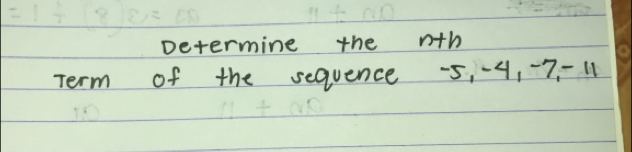 Determine the nth
Term of the sequence -5, -4, -7, - 11